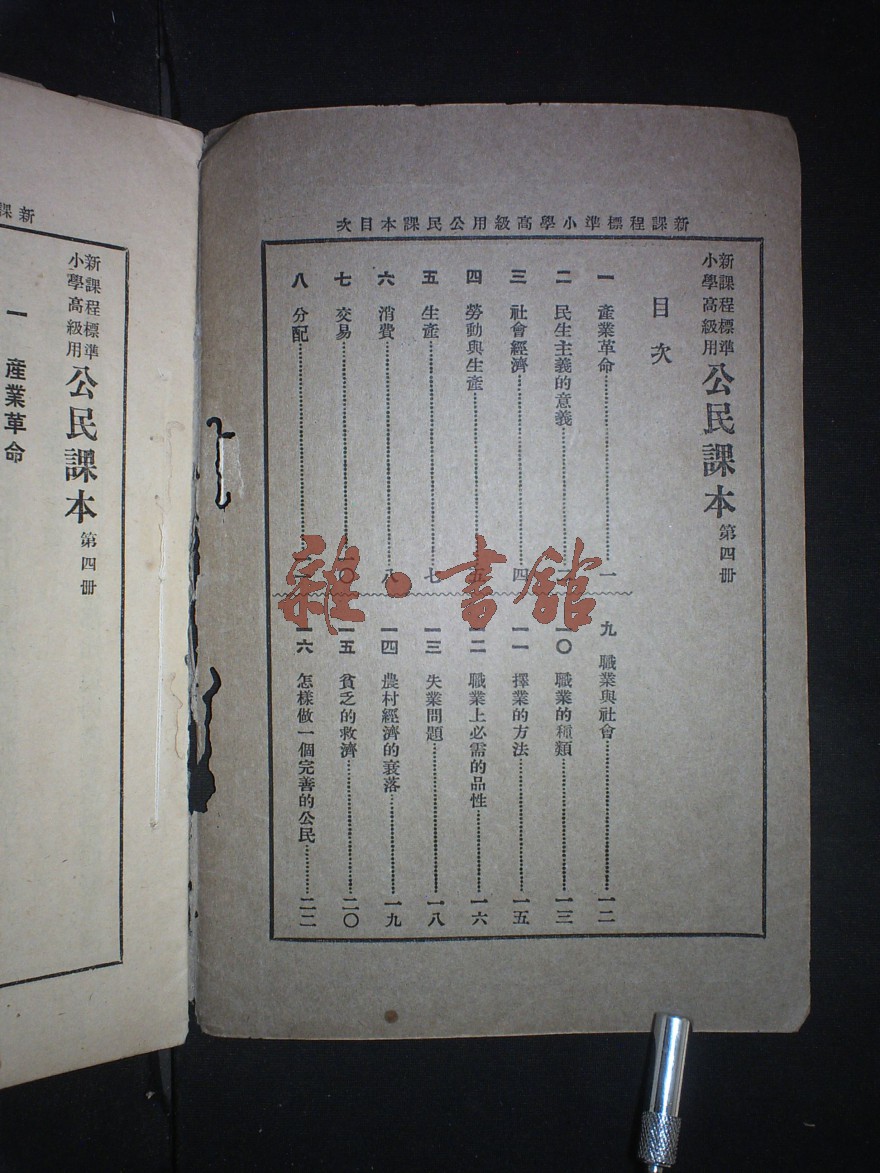 新課程標準小學高級用公民課本目次
新課程標準
小學高級用
公民課本 第四冊
目次
一 產業革命……一
二 民生主義的意義……
三 社會經濟……四
四 勞動與生產……五
五 生產……七
六 消費……八
七 交易……一〇
八 分配……
九 職業與社會……一二
一〇 職業的種類……一三
一一 擇業的方法……一五
一二 職業上必需的品性……一六
一三 失業問題……一八
一四 農村經濟的衰落……一九
一五 貧乏的救濟……二〇
一六 怎樣做一個完善的公民……二二
雜·書館
新課
新課程標準
小學高級用
公民課本 第四冊
一 產業革命